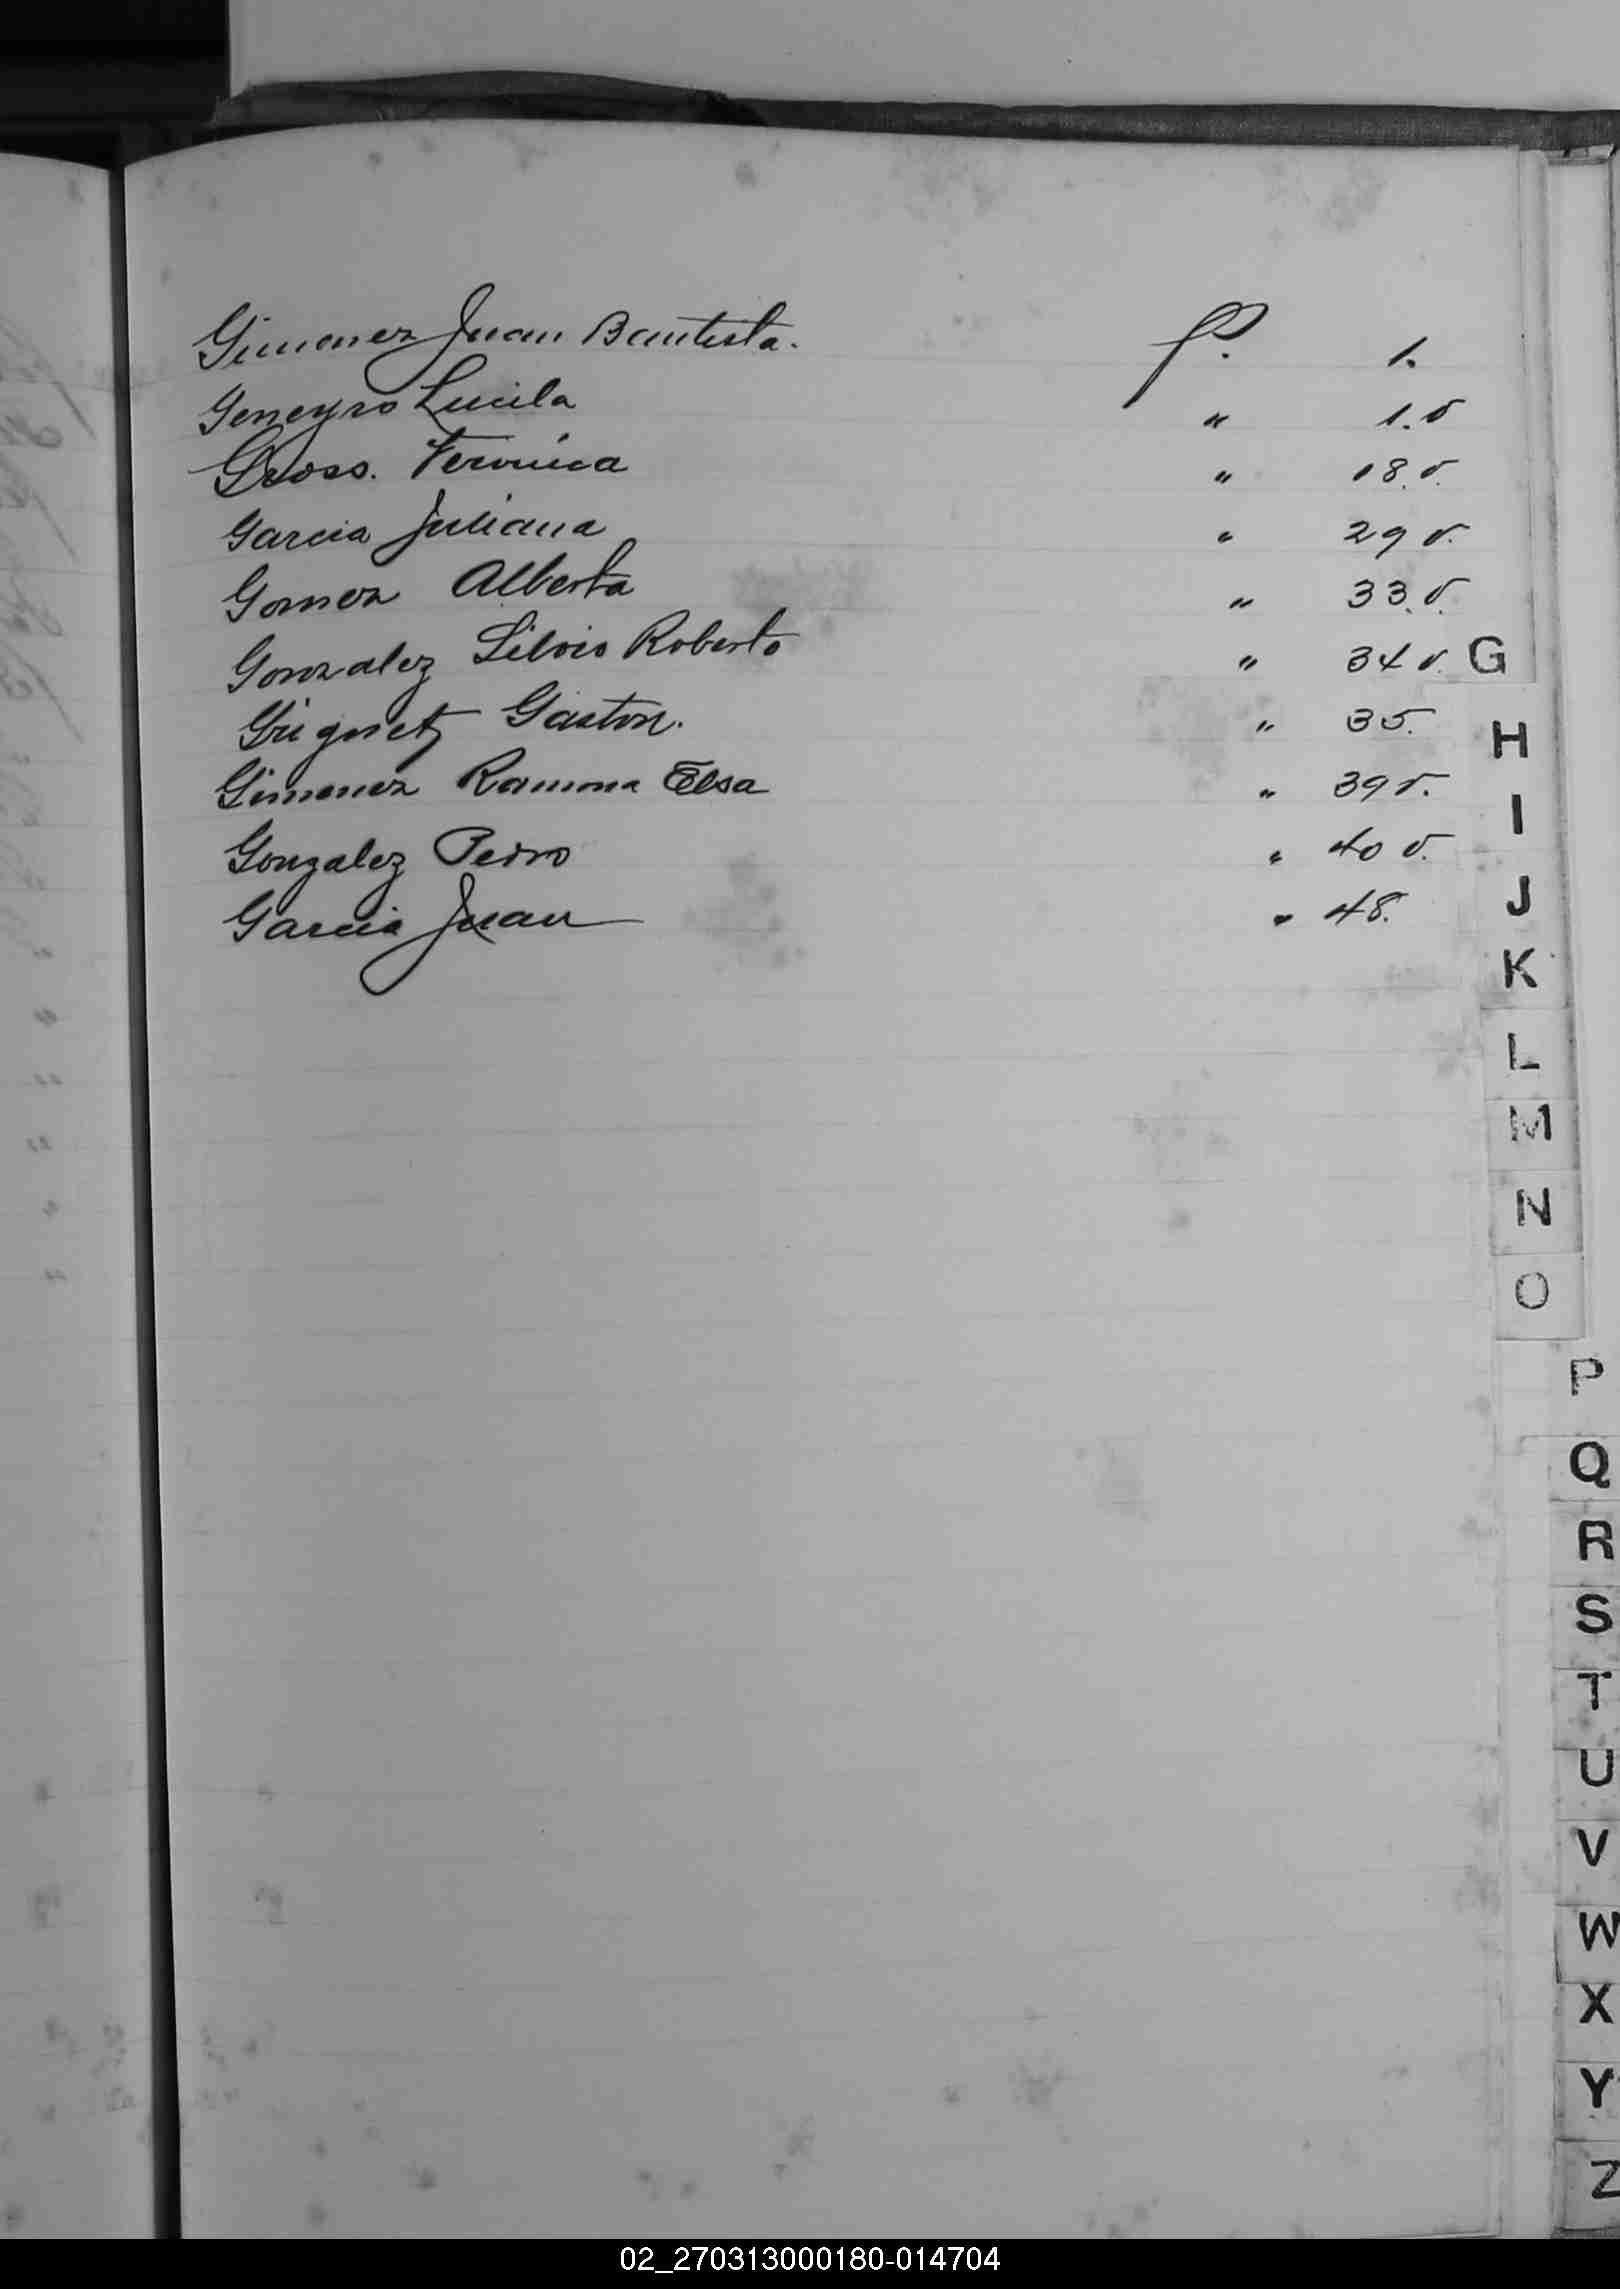 Gimenez Juan Bautista. f. 1.
Geneyro Lucila " 1.v
Gross. Veronica " 18.v.
Garcia Juliana " 29 v.
Gomez Alberta " 33.v.
Gonzalez Silvio Roberto " 34 v.
Gaston. " 35.
Gimenez Ramona Elsa " 39 v.
Gonzalez Pedro " 40 v.
Garcia Juan " 48.
G
H
I
J
K
L
M
N
O
P
Q
R
S
T
U
V
W
X
Y
Z
02_270313000180-014704